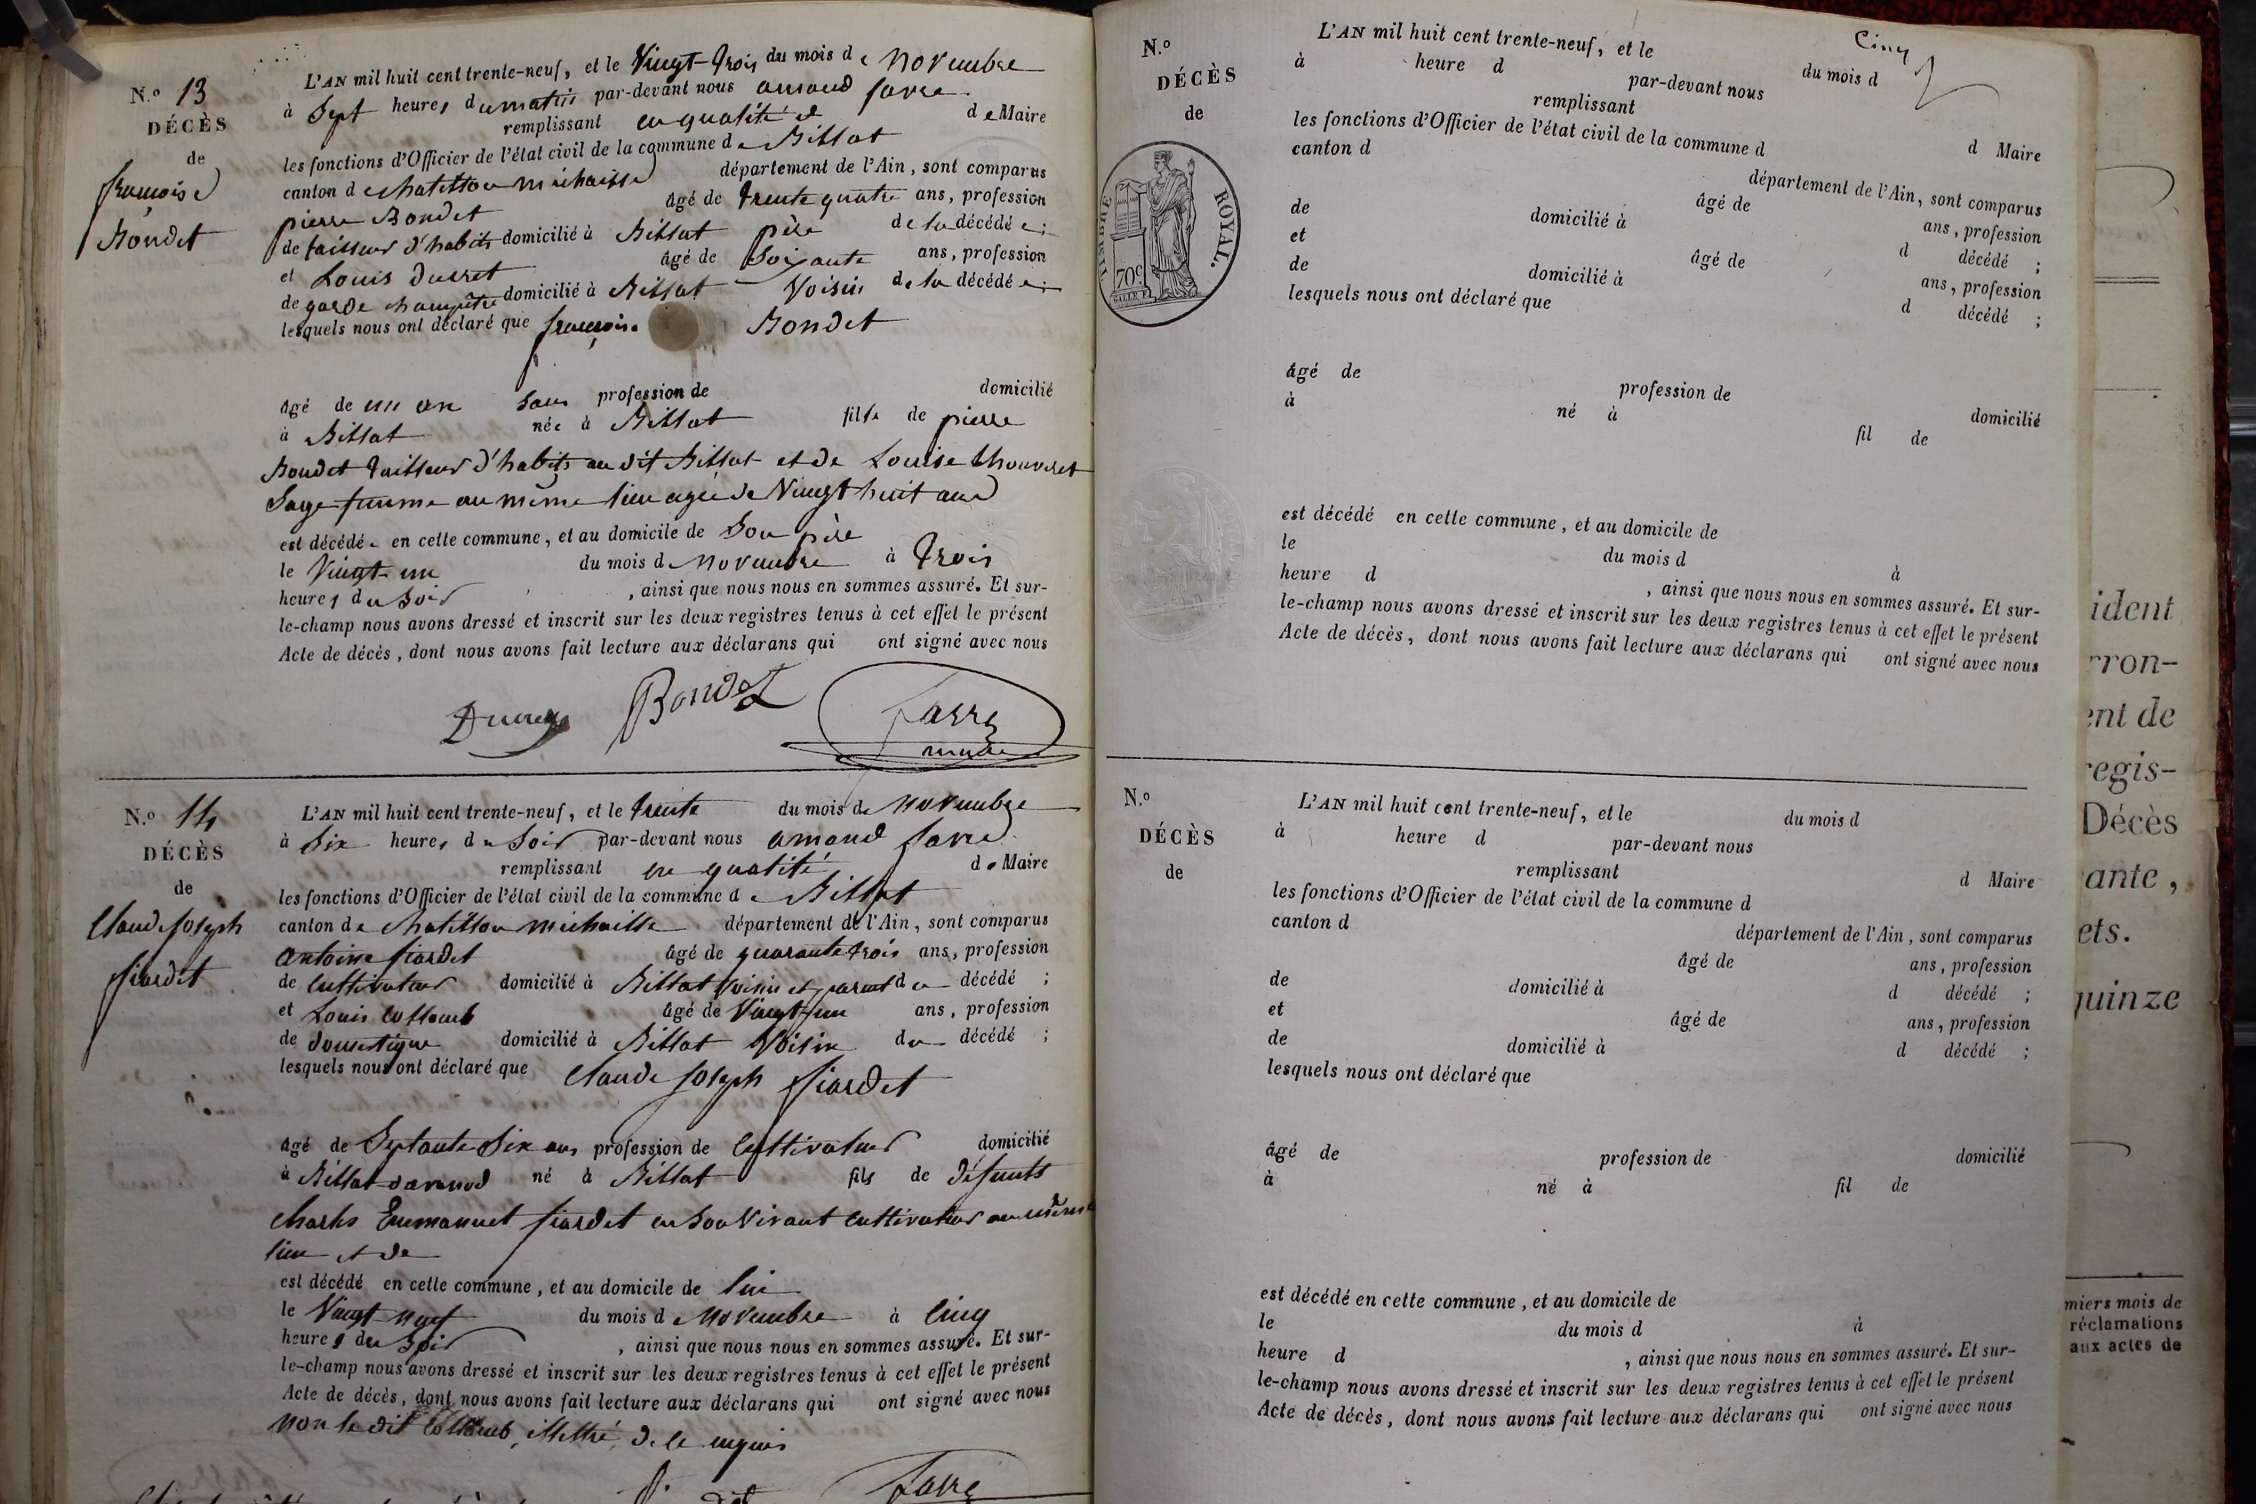 N.º 13
DÉCÈS
de
françoise
Bondet
L'AN mil huit cent trente-neuf, et le Vingt-trois du mois de novembre
à Sept heures du matin par-devant nous amand favre
remplissant en qualité de Maire
les fonctions d'Officier de l'état civil de la commune de Billiat
canton de chatillon michaille département de l'Ain, sont comparus
pierre Bondet âgé de trente quatre ans, profession
de tailleur d'habits domicilié à Billiat père de la décédée;
et Louis Ducret âgé de Soixante ans, profession
de garde champêtre domicilié à Billiat Voisin de la décédée;
lesquels nous ont déclaré que françoise Bondet
âgé de un an Sans profession de domicilié
à Billiat née à Billiat fille de pierre
Bondet tailleur d'habits au dit Billiat et de Louise
Sage femme au même lieu agée de Vingt huit ans
est décédée en cette commune, et au domicile de Son père
le Vingt-un du mois de novembre à trois
heures du Soir, ainsi que nous nous en sommes assuré. Et sur-
le-champ nous avons dressé et inscrit sur les deux registres tenus à cet effet le présent
Acte de décès, dont nous avons fait lecture aux déclarans qui ont signé avec nous
Ducret Bondet favre
maire
N.º 14
DÉCÈS
de
Claude Joseph
fiardet
L'AN mil huit cent trente-neuf, et le trente du mois de novembre
à Six heures du Soir par-devant nous amand favre
remplissant en qualité de Maire
les fonctions d'Officier de l'état civil de la commune de Billiat
canton de chatillon michaille département de l'Ain, sont comparus
antoine fiardet âgé de quarante trois ans, profession
de cultivateur domicilié à Billiat voisin et parent du décédé ;
et Louis Collomb âgé de Vingt-un ans, profession
de domestique domicilié à Billiat Voisin du décédé ;
lesquels nous ont déclaré que Claude Joseph fiardet
âgé de Septante Six ans profession de Cultivateur domicilié
à Billiat né à Billiat fils de défunts
charles Emmanuel fiardet en Son Vivant Cultivateur au même
lieu et de
est décédé en cette commune, et au domicile de lui
le Vingt neuf du mois de novembre à Cinq
heures du Soir, ainsi que nous nous en sommes assuré. Et sur-
le-champ nous avons dressé et inscrit sur les deux registres tenus à cet effet le présent
Acte de décès, dont nous avons fait lecture aux déclarans qui ont signé avec nous
non le dit Collomb, illettré, de ce enquis
favre
Cinq
N.º
DÉCÈS
de
TIMBRE ROYAL.
70c
L'AN mil huit cent trente-neuf, et le du mois d
à heure d par-devant nous
remplissant d Maire
les fonctions d'Officier de l'état civil de la commune d
canton d département de l'Ain, sont comparus
âgé de ans, profession
de domicilié à d décédé ;
et âgé de ans, profession
de domicilié à d décédé ;
lesquels nous ont déclaré que
âgé de profession de domicilié
à né à fil de
est décédé en cette commune, et au domicile de
le du mois d à
heure d , ainsi que nous nous en sommes assuré. Et sur-
le-champ nous avons dressé et inscrit sur les deux registres tenus à cet effet le présent
Acte de décès, dont nous avons fait lecture aux déclarans qui ont signé avec nous
N.º
DÉCÈS
de
L'AN mil huit cent trente-neuf, et le du mois d
à heure d par-devant nous
remplissant d Maire
les fonctions d'Officier de l'état civil de la commune d
canton d département de l'Ain, sont comparus
âgé de ans, profession
de domicilié à d décédé ;
et âgé de ans, profession
de domicilié à d décédé ;
lesquels nous ont déclaré que
âgé de profession de domicilié
à né à fil de
est décédé en cette commune, et au domicile de
le du mois d à
heure d , ainsi que nous nous en sommes assuré. Et sur-
le-champ nous avons dressé et inscrit sur les deux registres tenus à cet effet le présent
Acte de décès, dont nous avons fait lecture aux déclarans qui ont signé avec nous
ident
rron-
ent de
regis-
Décès
ante,
ets.
quinze
miers mois de
réclamations
aux actes de